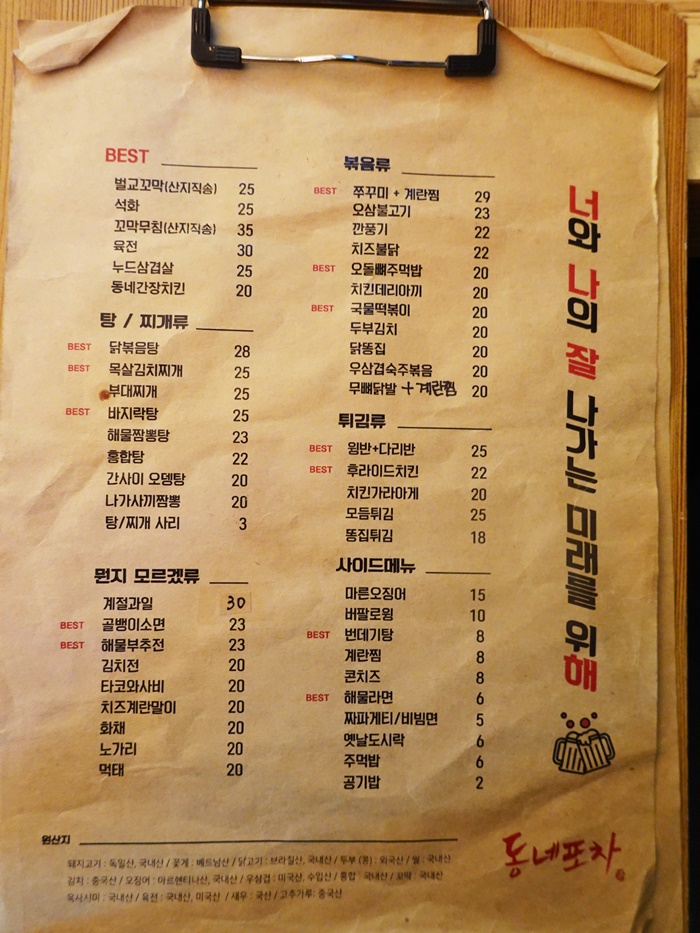 BEST
벌교꼬막(산지직송) 25
석화 25
꼬막무침(산지직송) 35
육전 30
누드삼겹살 25
동네간장치킨 20
탕 / 찌개류
BEST 닭볶음탕 28
BEST 목살김치찌개 25
부대찌개 25
BEST 바지락탕 25
해물짬뽕탕 23
홍합탕 22
간사이 오뎅탕 20
나가사끼짬뽕 20
탕/찌개 사리 3
뭔지 모르겠류
계절과일 30
BEST 골뱅이소면 23
BEST 해물부추전 23
김치전 20
타코와사비 20
치즈계란말이 20
화채 20
노가리 20
먹태 20
볶음류
BEST 쭈꾸미 + 계란찜 29
오삼불고기 23
깐풍기 22
치즈불닭 22
BEST 오돌뼈주먹밥 20
치킨데리야끼 20
BEST 국물떡볶이 20
두부김치 20
닭똥집 20
우삼겹숙주볶음 20
무뼈닭발 + 계란찜 20
튀김류
BEST 윙반+다리반 25
BEST 후라이드치킨 22
치킨가라아게 20
모듬튀김 25
똥집튀김 18
사이드메뉴
마른오징어 15
버팔로윙 10
BEST 번데기탕 8
계란찜 8
콘치즈 8
BEST 해물라면 6
짜파게티/비빔면 5
옛날도시락 6
주먹밥 6
공기밥 2
너와 나의 잘 나가는 미래를 위해
원산지
돼지고기 : 독일산, 국내산 / 꽃게 : 베트남산 / 닭고기 : 브라질산, 국내산 / 두부 (콩) : 외국산 / 쌀 : 국내산
김치 : 중국산 / 오징어 : 아르헨티나산, 국내산 / 우삼겹 : 미국산, 수입산 / 홍합 : 국내산 / 꼬막 : 국내산
육사시미 : 국내산 / 육전 : 국내산, 미국산 / 새우 : 국산 / 고추가루: 중국산
동네포차